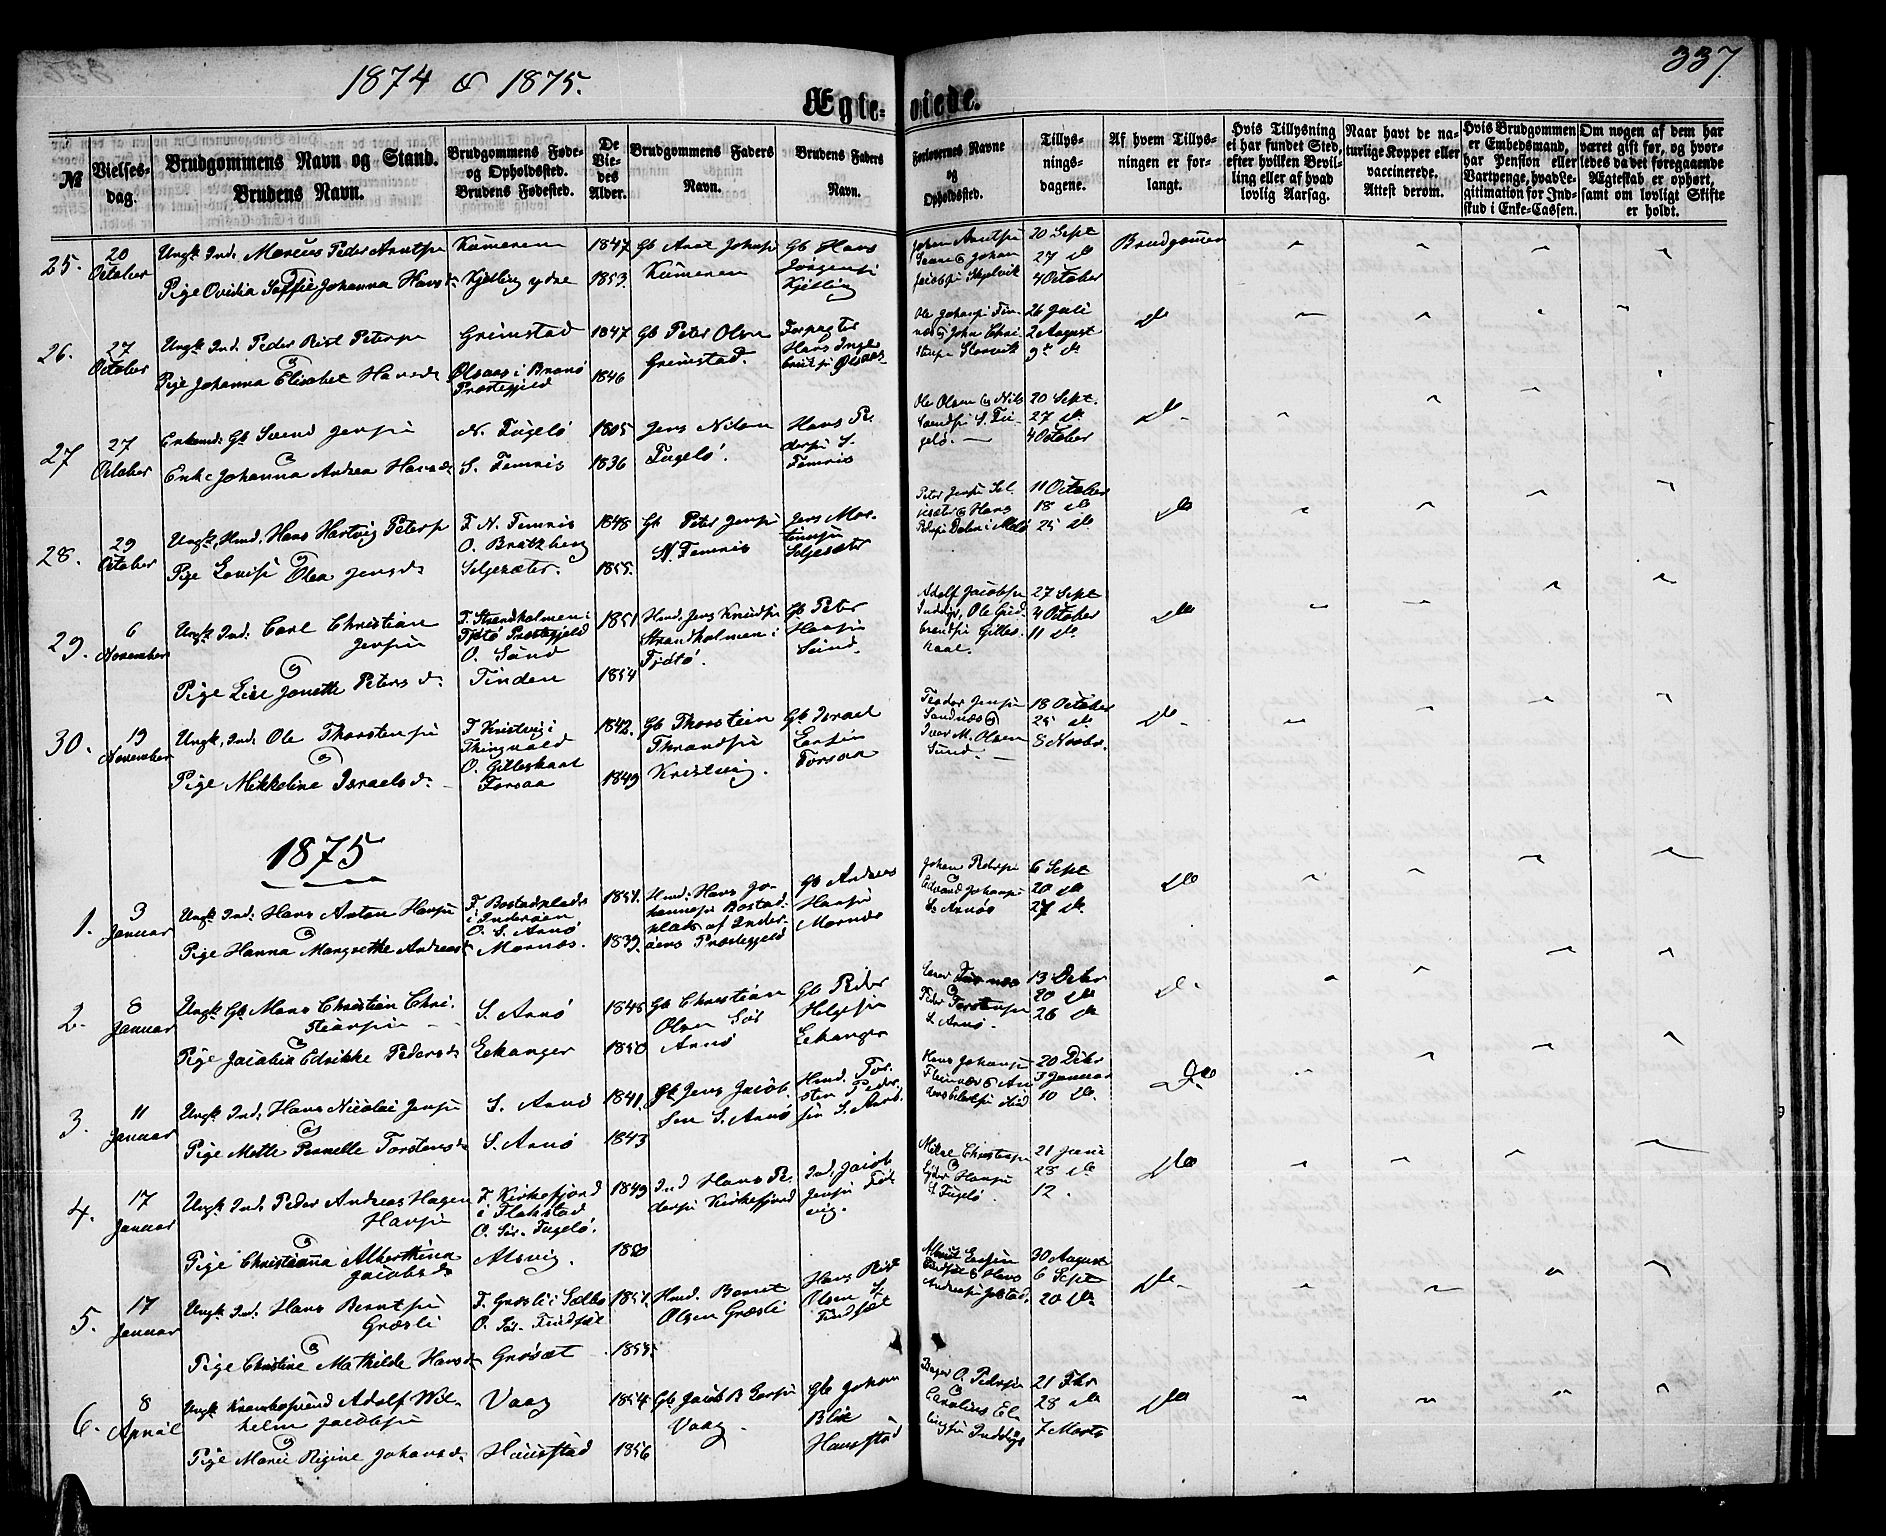 1874 & 1875.
337.
Ægte-viede.
№
Vielses-dag.
Brudgommens Navn og Stand.
Brudens Navn.
Brudgommens Føde-
og Opholdssted.
Brudens Fødested.
De
Vie-
des
Alder.
Brudgommens Faders
Navn.
Brudens Faders
Navn.
Forlovernes Navne
og
Opholdssted.
Tillys-
nings-
dagene.
Af hvem Tillys-
ningen er for-
langt.
Hvis Tillysning
ei har fundet Sted,
efter hvilken Bevil-
ling eller af hvad
lovlig Aarsag.
Naar havt de na-
turlige Kopper eller
vaccinerede.
Attest derom.
Hvis Brudgommen
er Embedsmand,
har Pension eller
Vartpenge, hvad Le-
gitimation for Ind-
skud i Enke-Cassen.
Om nogen af dem har
været gift før, og hvor-
ledes da det foregaaende
Ægteskab er ophørt,
samt om lovligt Skifte
er holdt.
25. 20 October
Ungk. Ind. Marcus Peder Arntsen
Pige Ovidia Soffie Johanna Hansd.
Kummeren
Kjelling ydre
1847
1853.
Gb Arnt Johnsen
Kummeren
Gb Hans
Jørgensen
Kjelling
Johan Arntsen
Johan
Jacobsen Skjelvik
20 Sept
27 do
4 October
Brudgommen
26. 27 October
Ungk. Ind. Peder Rist Petersen
Pige Johanna Elisabet Hansd.
Grimstad
Olsaas i Brønø
Præstegjeld
1847
1846
Gb Peter Olsen
Grimstad.
Forpagter
Hans Inge-
britsen Olsaas
26 Juli
2 August
9de do
do
27 27 October
Enkemd. Gb Svend Jensen
Enke Johanna Andrea Hansd.
N. Fugelø
S. Femris
1805
1836
Jens Nilsen
Fugelø.
Hans Pe-
dersen S.
Femris
Ole Olsen & Nils
Svendsen S. Fu-
gelø.
20 Sept.
27 do
4 October
do
28. 29 October
Ungk. Hmd. Hans Hartvig Petersen
Pige Lovise Olea Jensd.
F. N. Femris
O. Bratzberg
Selgesæter.
1848
1855.
Gb Peter Jensen
N. Femris
Jens Mor-
tensen
Selgesæter
Peter Jensen Sel-
gesæter & Hans
11 October
18 do
25 do
do
29. 6 November
Ungk. Ind. Carl Christian
Jensen
Pige Lise Jonette Petersd.
F. Strandholmen i
Tjøtø Præstegjeld
O. Sund
Tinden
1851
1854
Hmd. Jens Knudsen
Strandholmen i
Tjøtø.
Gb Peter
Hansen
Sund.
Adolf Jacobsen
Indyr, Ole Gud-
brandsen Gilles-
kaal.
27 Sept
4 October
11 do
do
30. 19 November
Ungk. Ind. Ole Thorstensen
Pige Mikkeline Israelsd.
F. Kristvig i
Thingvold
O. Gilleskaal
Forsaa
1842.
1849
Gb Thorstein
Thrandsen
Kristvig.
Gb Israel
Larsen
Forsaa
Teodor Jensen
Sandnes &
Iver M. Olsen
Sund.
18 October
25 do
8 Novbr.
do
1875
1. 3 Januar
Ungk. Ind. Hans Anton Hansen
Pige Hanna Margrethe Andreasd.
F. Bostadplads
i Inderøen
O. S. Arnø
Mornæs.
1851.
1839.
Hmd. Hans Jo-
hannesen Bostad-
plads af Inder-
øens Præstegjeld
Gb Andreas
Hansen
Mornæs
Johan Pedersen
Edvard Johansen
S. Arnøs
6 Sept
20 do
27 do
do
2. 8 Januar
Ungk. Gb. Mons Christian Chri-
stiansen
Pige Jacobia Edrikke Pedersd.
S. Arnø
Eekanger
1845
1850
Gb Christian
Olsen Sør
Arnø
Gb Peder
Helgesen
Eekanger
Peder Torstensen
S. Arnø.
13 Debr
20 do
26 do
do.
3. 11 Januar
Ungk. Ind. Hans Nicolai Jensen
Pige Mette Pernelle Torstensd.
S. Arnø
S. Arnø
1841.
1843
Gb. Jens Jacob-
sen S. Arnø
Hmd. Tor-
sten Peder-
sen S. Arnø.
Hans Johansen
20 Debr
3 Januar
10 do.
do
4. 17 Januar
Ungk. Ind. Peder Andreas Hagen
Hansen
Pige Christianna Alberthina
Jacobsd.
F. Kirkefjord
i Flakstad
O. Sør-Fugelø.
Alsvig.
1849
1850
Ind Hans Pe-
dersen Kirkefjord
Ind. Jacob
Jensen
vig.
Hansen
S Fugelø.
21 Juni
28 do
12.
do
5. 17 Januar
Ungk. Ind. Hans Berntsen
Græsli
Pige Christine Mathilde Hansd.
F. Græsli i Sælbo
O. Sør-Findsæt
Grøsæt
1851.
1855.
Hmd. Bernt
Olsen Græsli
Hans Rist
Olsen S
Findsæt
30 August
6 Sept
20 do
do
6. 8 April
Ungk. Krambosvend Adolf Wil-
helm Jacobsen
Pige Marie Regine Johansd.
Vaag
Haustad
1854
1856
Gb Jacob B Larsen
Vaag.
Gb Johan
Blix
Haustad
O. Pedersen
21 Fbr
28 do
7 Marts
do